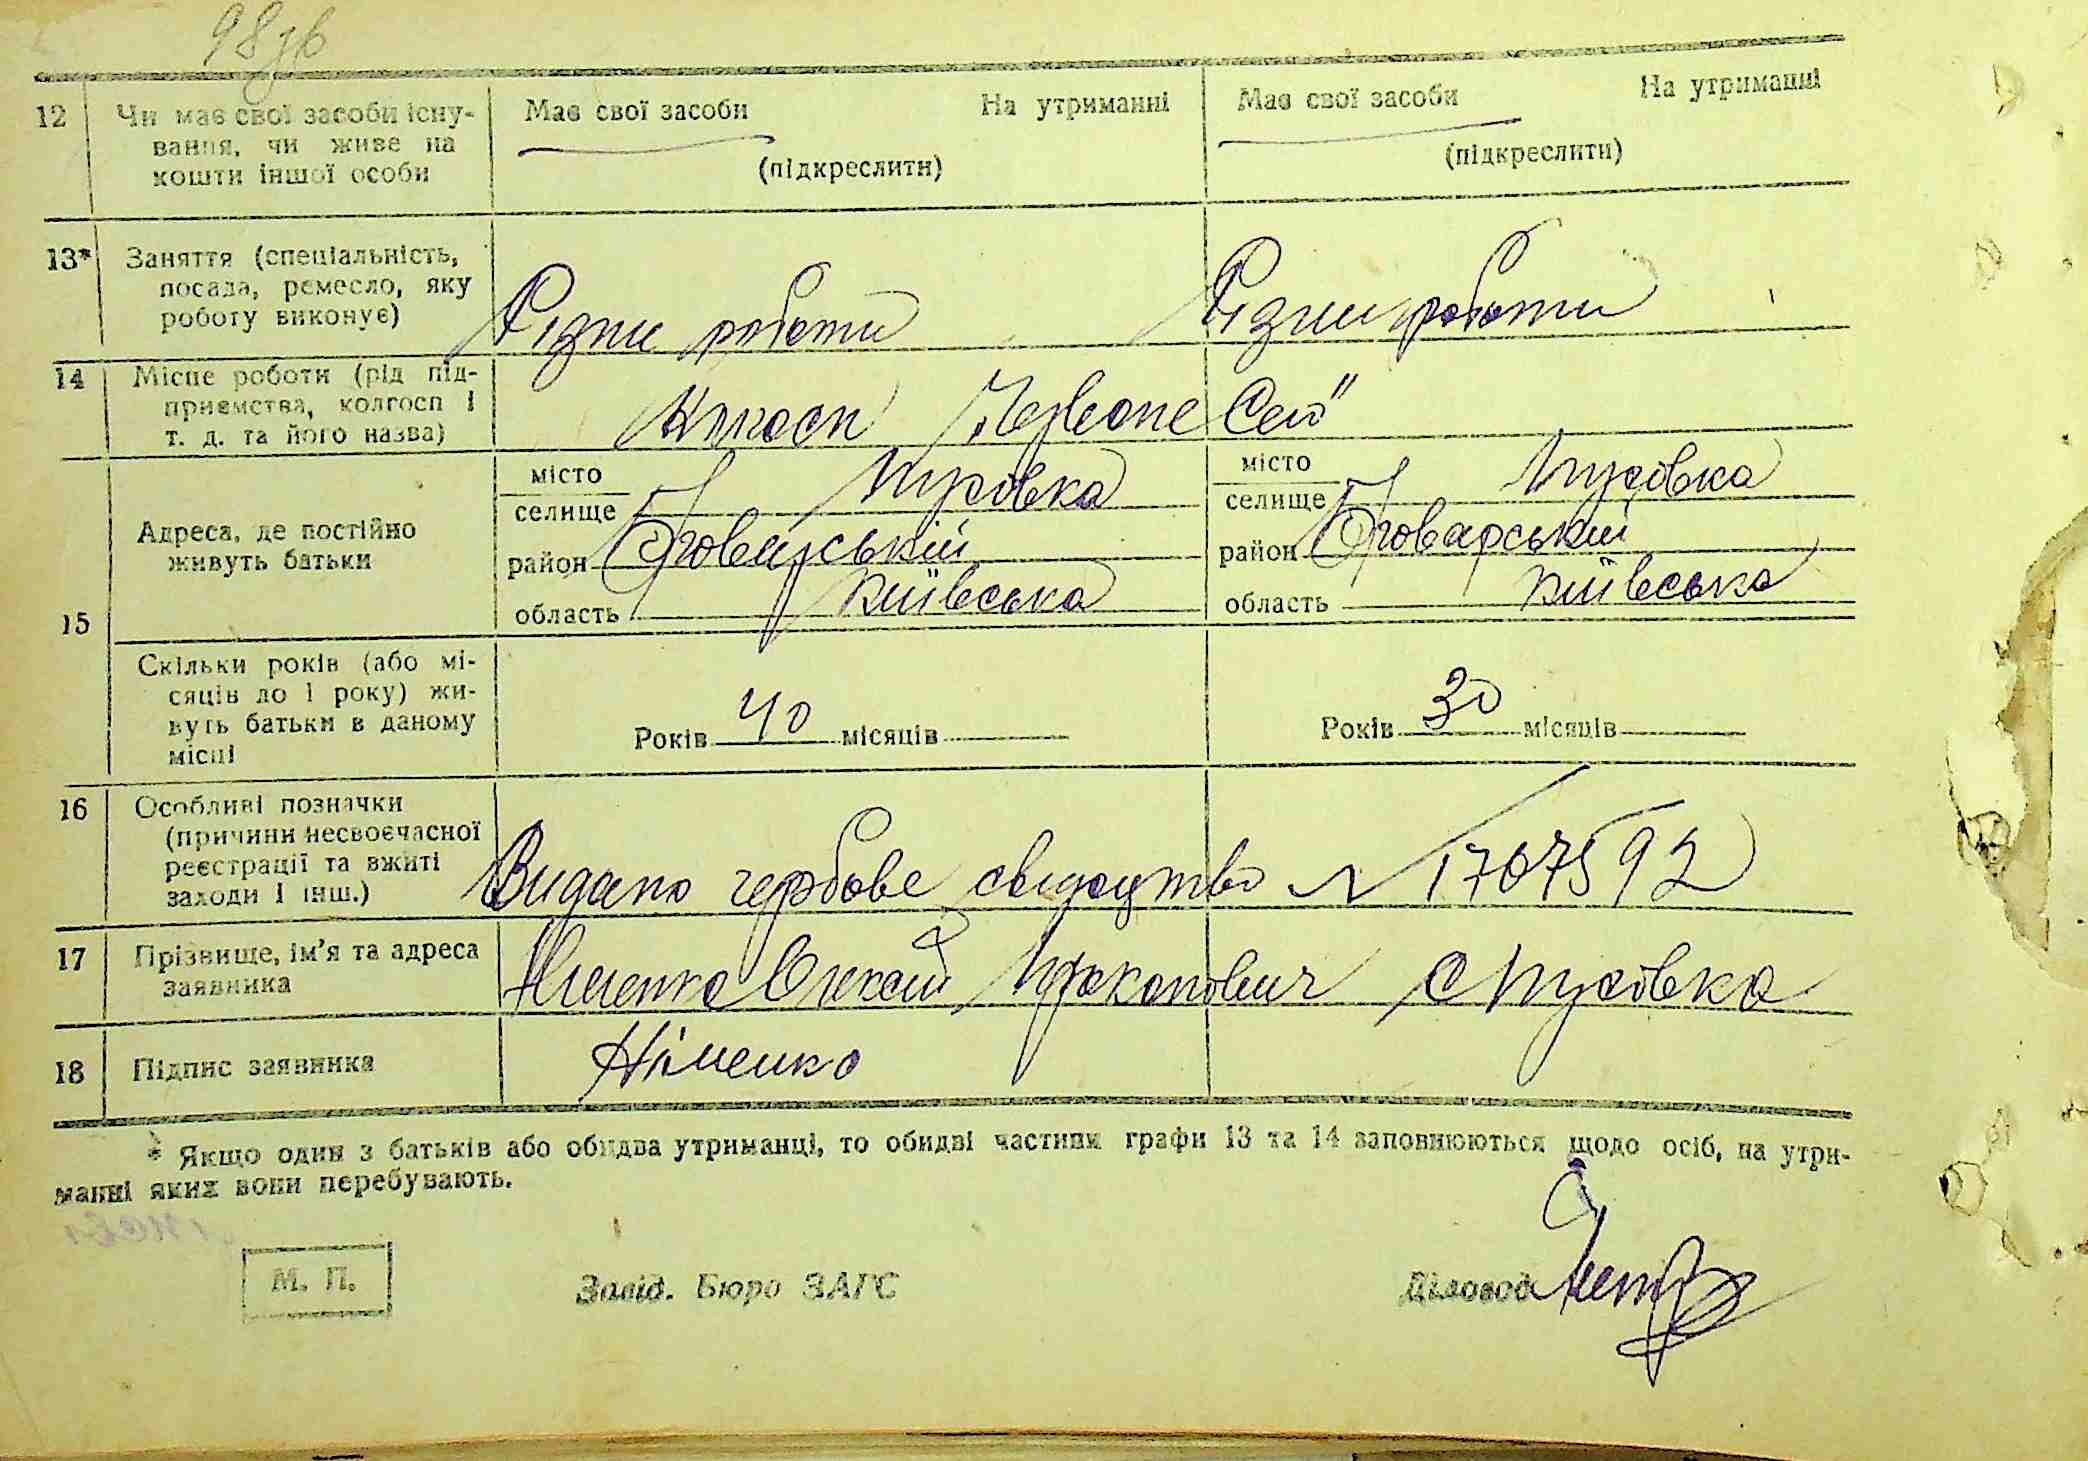 98зв
12 Чи має свої засоби існу- Має свої засоби На утриманні Має свої засоби На утриманні
вання, чи живе на
кошти іншої особи (підкреслити) (підкреслити)
13* Заняття (спеціальність,
посада, ремесло, яку
роботу виконує) Різни роботи Різни роботи
14 Місце роботи (рід під-
приємства, колгосп і
т. д. та його назва) Колгосп „Червоне Село"
місто Пухівка місто Пухівка
селище селище
Адреса, де постійно
живуть батьки район Броварський район Броварський
15 область Київська область Київська
Скільки років (або мі-
сяців до 1 року) жи-
вуть батьки в даному Років 40 місяців Років 30 місяців
місці
16 Особливі позначки
(причини несвоєчасної
реєстрації та вжиті
заходи і інш.) Видано гербове свідоцтво № 1707592
17 Прізвище, ім'я та адреса
заявника Німенко Олексій с Пухівка
18 Підпис заявника Німенко
* Якщо один з батьків або обидва утриманці, то обидві частини графи 13 та 14 заповнюються щодо осіб, на утри-
манні яких вони перебувають.
М. П. Завід. Бюро ЗАГС Діловод